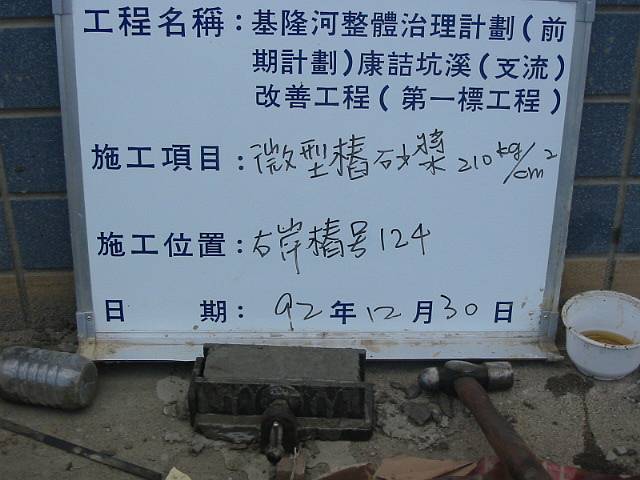 工程名稱：基隆河整體治理計劃（前
期計劃）康誥坑溪（支流）
改善工程（第一標工程）
施工項目：微型樁砂漿 210kg/cm²
施工位置：右岸樁号124
日　　期：92年12月30日